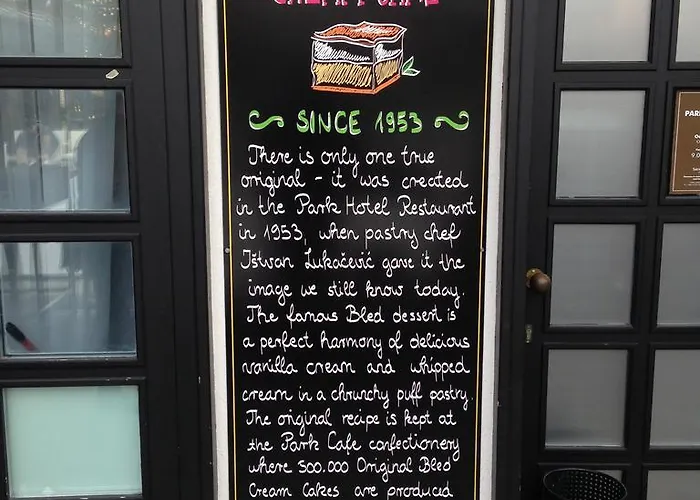 SINCE 1953
There is only one true
original - it was created
in the Park Hotel Restaurant
in 1953, when pastry chef
Ištvan Lukačević gave it the
image we still know today.
The famous Bled dessert is
a perfect harmony of delicious
vanilla cream and whipped
cream in a chrunchy puff pastry.
The original recipe is kept at
the Park Cafe confectionery
where 500.000 Original Bled
Cream Cakes are produced